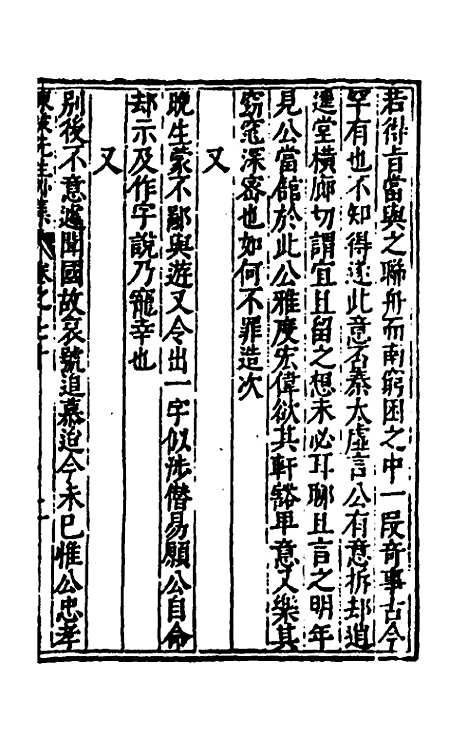 若得肯當與之聯舟而南窮困之中一段奇事古今
罕有也不知得遂此意否秦太虛言公有意拆却逍
遥堂橫廊切謂宜且留之想未必耳聊且言之明年
見公當館於此公雅度宏偉欲其軒豁卑意又樂其
窈窕深密也如何不罪造次
又
晚生蒙不鄙與遊又令出一字似涉僭易願公自命
却示及作字說乃寵幸也
又
別後不意遽聞國故哀號追慕迨今未已惟公忠孝